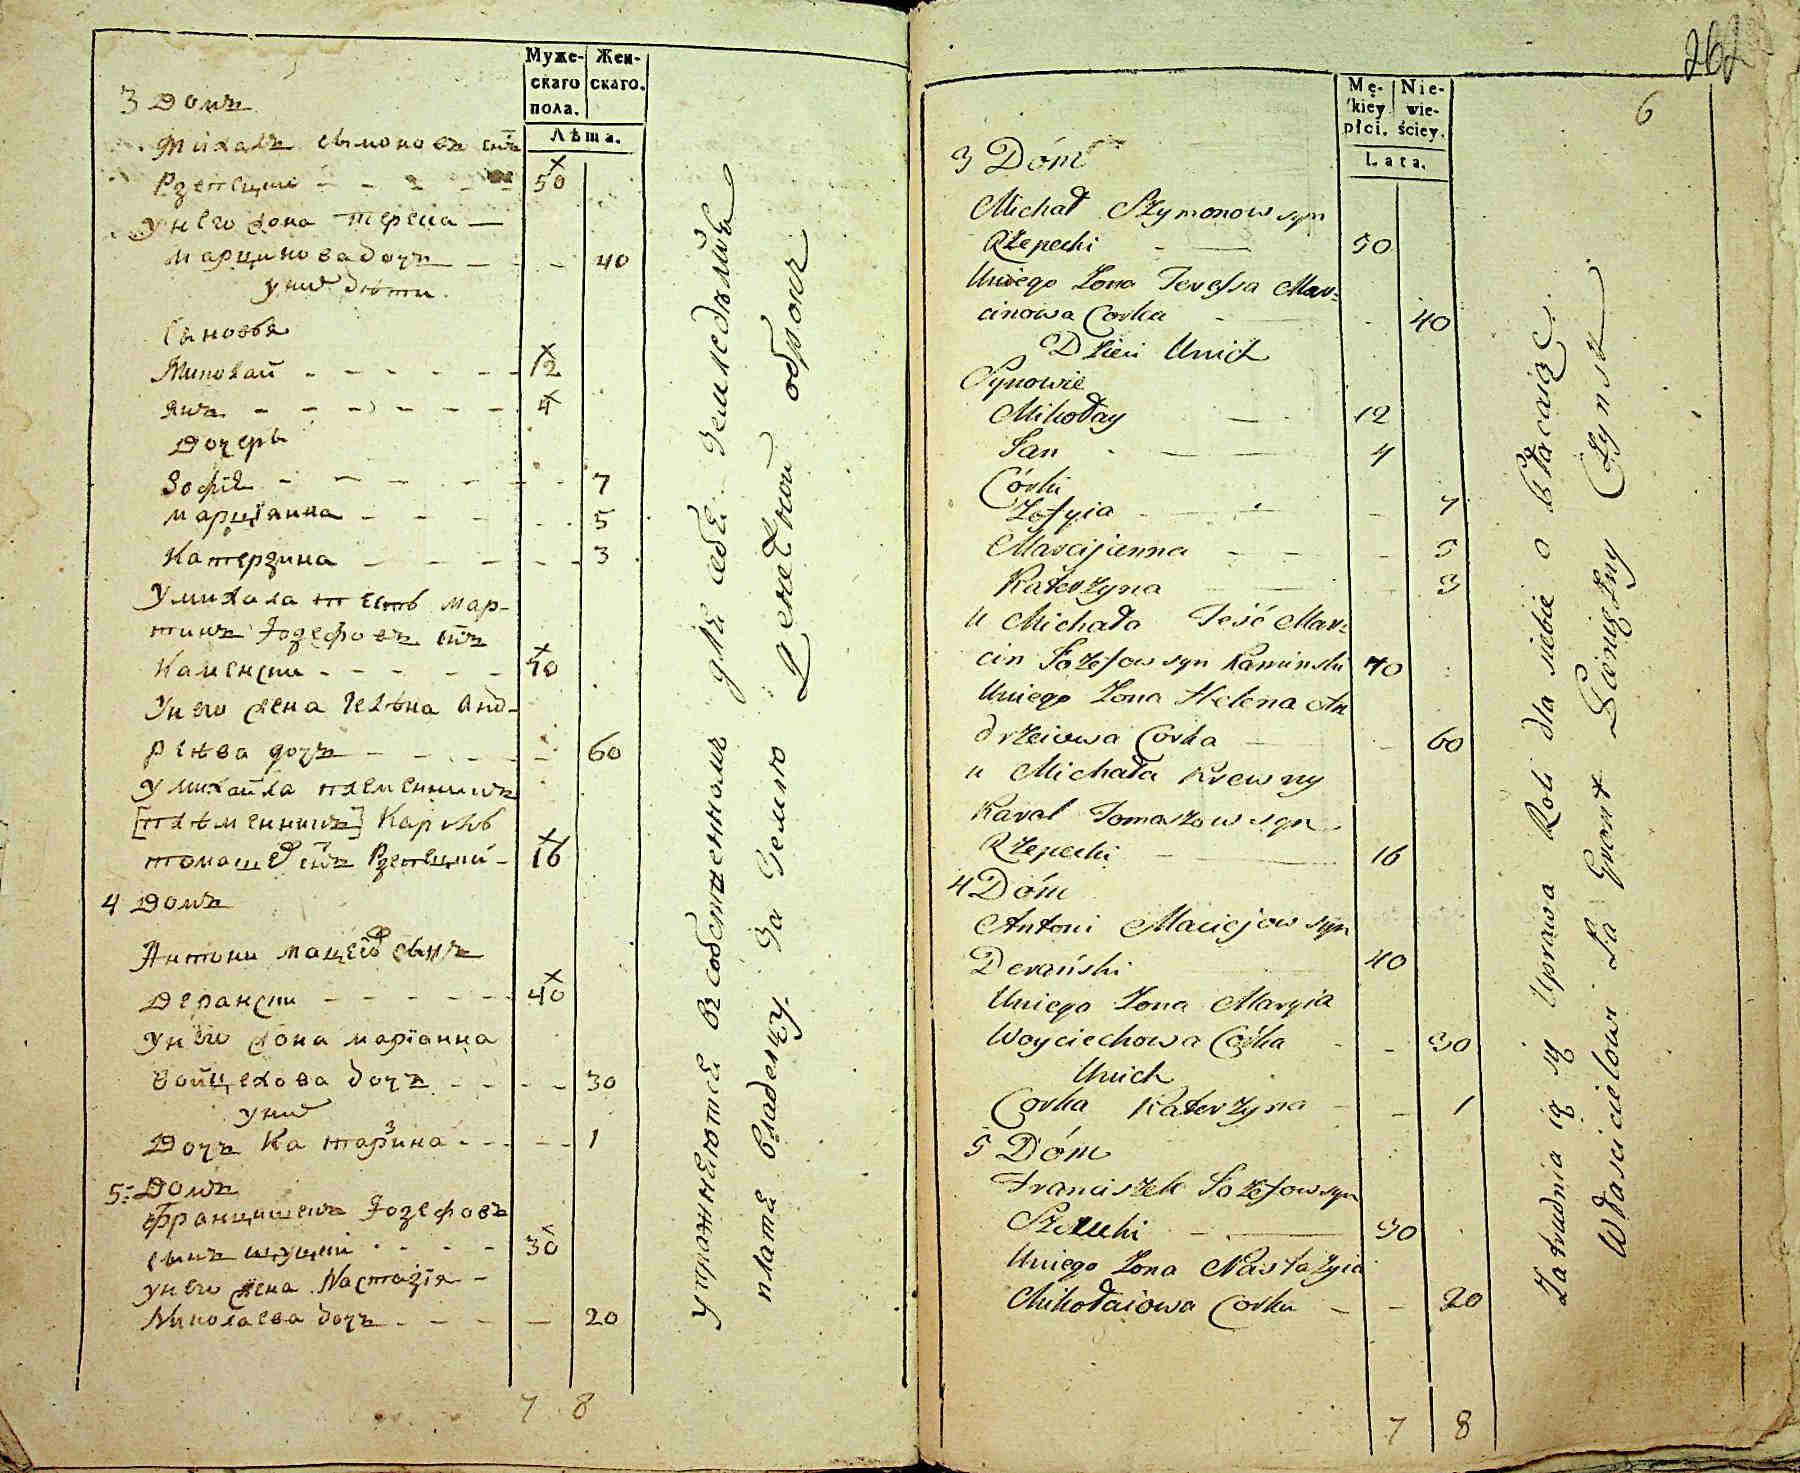 Муже-
скаго
пола.
Жен-
скаго.
Лѣта.
3 Домъ
Михалъ Сымоновъ снъ
Рзепецки 50
У него жона Тереса
Марцинова дочъ 40
у нихъ дѣти
Сыновья
Миколай 12
Янъ 4
Дочерь
Зофія 7
Марціанна 5
Катерзина 3
У Михала тесть Мар-
тинъ Іозефовъ снъ
Каменски 70
У него жена Гелѣна Анд-
реѣва дочъ 60
У Михайла племенникъ
[племенникъ] Кароль
Томашев снъ Рзепецкий 16
4 Домъ
Антони Мацеіов сынъ
Дерански 40
У него жона Маріанна
Войцехова дочъ 30
у них
Дочъ Катарзина 1
5 Домъ
Францишекъ Іозефовъ
сынъ 30
у него жена Настазія
Николаева дочъ 20
7 8
упражняются въ собственномъ для себя земледѣлiи
платя владельцу за землю денежной оброкъ
262
6
Mę-
kiey
płci.
Nie-
wie-
ściey.
Lata.
3 Dóm
Michał Szymonow syn
Rzepecki 50
Uniego Zona Teressa Mar-
cinowa Corka 40
Dzieci Unich
Synowie
Mikołay 12
Jan 4
Córki
Zofyia 7
Marcijanna 5
Katerzyna 3
u Michała Teść Mar-
cin Jozefow syn Kaminski 70
Uniego Zona Helena An
drzeiowa Corka 60
u Michała Krewny
Karol Tomaszow syn
Rzepecki 16
4 Dóm
Antoni Maciejow syn
Derański 40
Uniego Zona Maryia
Woyciechowa Córka 30
Unich
Corka Katerzyna 1
5 Dóm
Franciszek Jozefow syn
30
Uniego Zona Nastazyia
Mikołaiowa Corka 20
7 8
Zatrudnia ią się Uprawa Roli dla siebie o płacaiąc
Właścicielowi Za Gront Pieniężny Czynsz